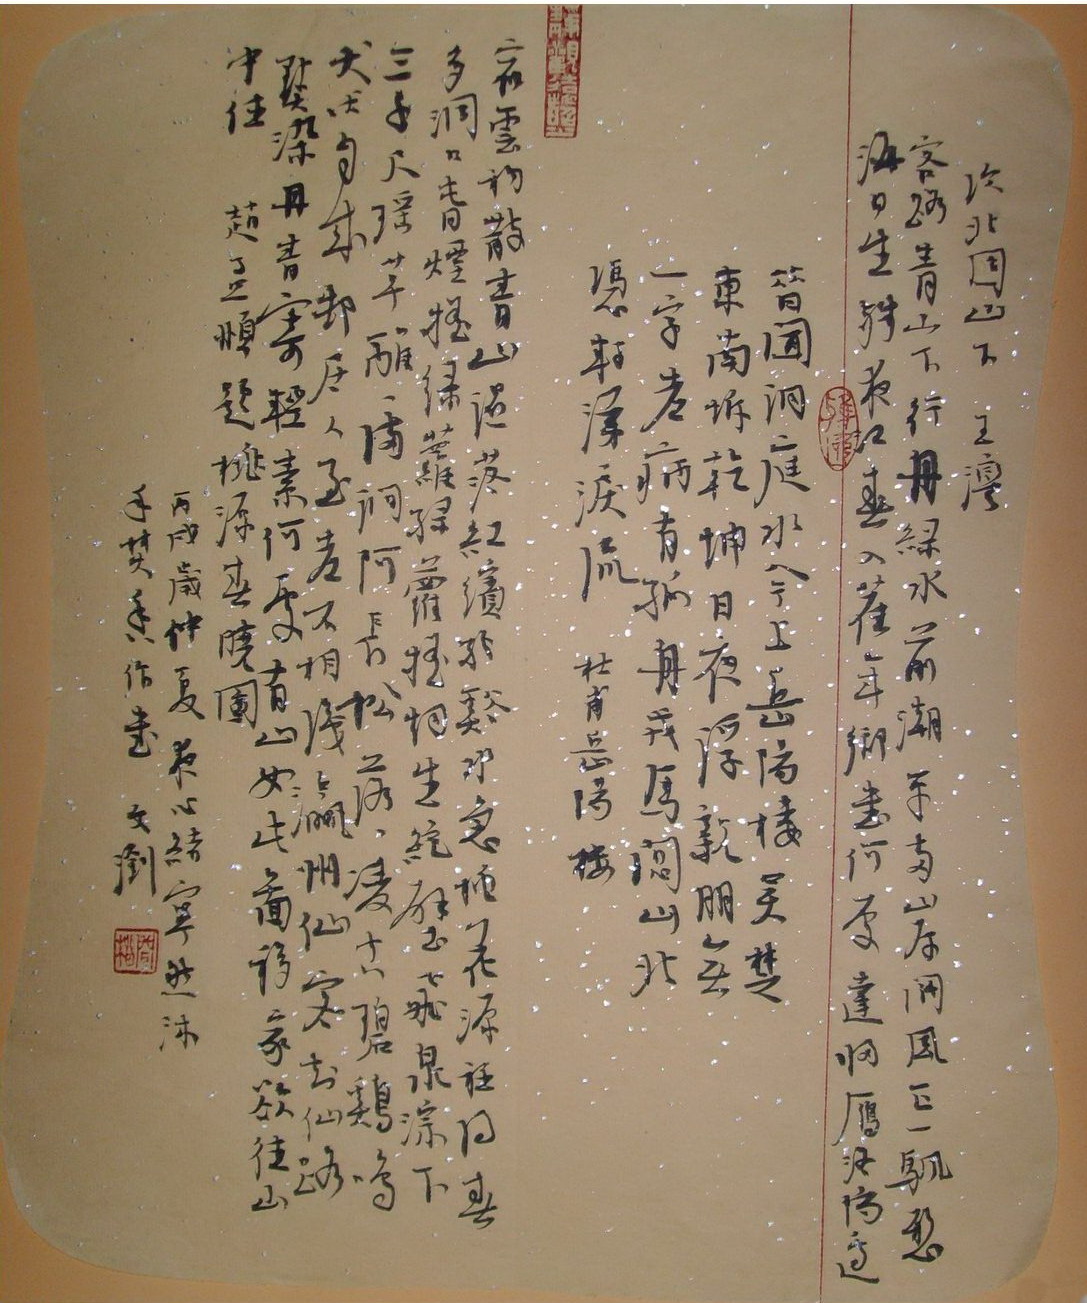 次北固山下 王灣
客路青山下行舟綠水前潮平兩岸闊風正一帆懸
海日生殘夜江春入舊年鄉書何處達歸雁洛陽邊
昔聞洞庭水今上岳陽樓吳楚
東南坼乾坤日夜浮親朋無
一字老病有孤舟戎馬關山北
憑軒涕淚流 杜甫岳陽樓
宿雲初散青山濕落紅繽紛溪水急桃花源裡得春
多洞口春煙搖綠蘿綠蘿搖煙生絕壁飛泉淙下
三千尺瑤草離離滿澗阿長松落落凌碧雞鳴
犬吠自成村居人至老不相識瀛州仙客知仙路
點染丹青寄輕素何處有山如此圖移家欲往山
中住 趙孟頫題桃源春曉圖
丙戌歲仲夏夜心緒寧然沐
手焚香作書 文瀏